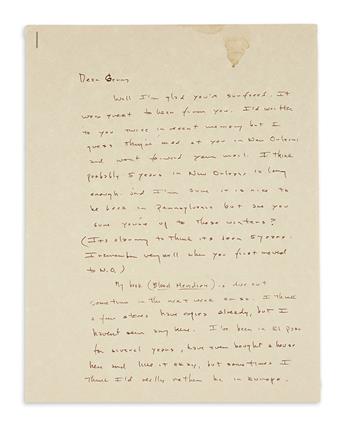 Dear
Well I'm glad you've surfaced. It
was great to hear from you. I'd written
to you twice in recent memory but I
guess they're mad at you in New Orleans
and wont forward your mail. I think
probably 5 years in New Orleans is long
enough and I'm sure it is nice to
be back in Pennsylvania but are you
sure you're up to those winters?
(Its alarming to think its been 5 years.
I remember very well when you first moved
to N.O.)
My book (Blood Meridian) is due out
sometime in the next week or so. I think
a few stores have copies already, but I
havent seen any here. I've been in El Paso
for several years, have even bought a house
here and like it okay, but sometimes I
think I'd really rather be in Europe.